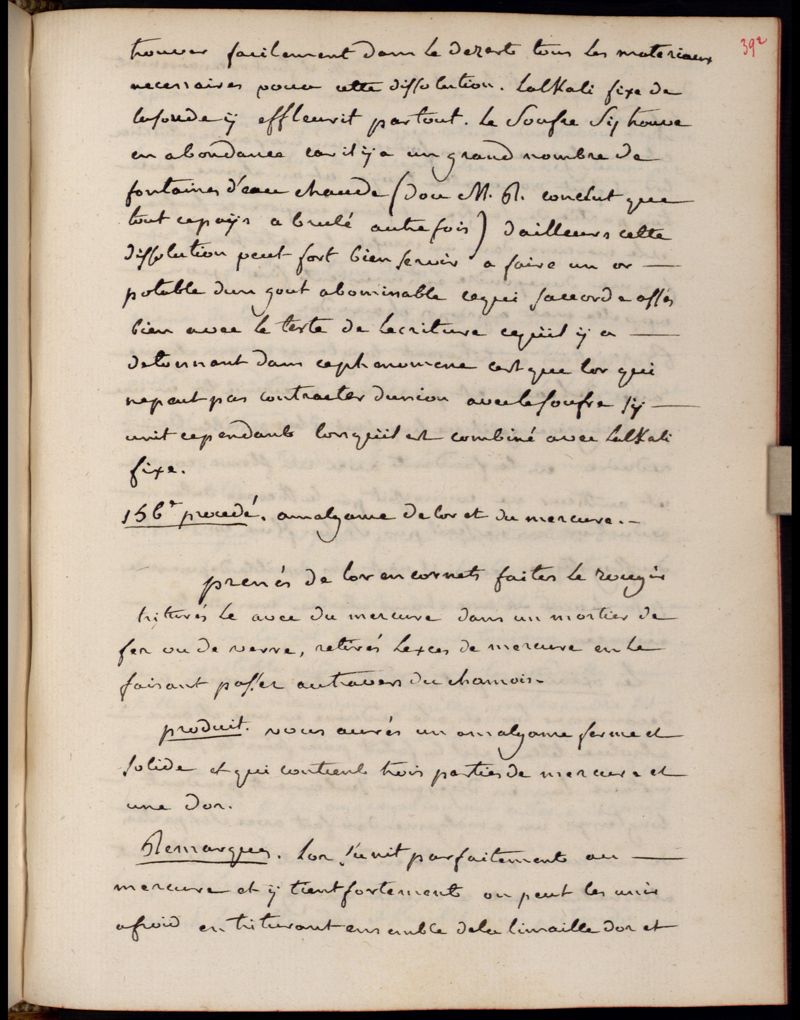 392
trouver facilement dans le dezert tous les materiaux
necessaires pour cette dissolution. Lalkali fixe de
lasoude y effleurit partout. Le Soufre Sy trouve
en abondance car il y a un grand nombre de
fontaines d'eau chaude (dou M. R. conclut que
tout cepays a brulé autrefois) dailleurs cette
dissolution peut fort bien servir a faire un or —
potable dun gout abominable cequi saccorde assés
bien avec le texte de lecriture cequil y a —
detonnant dans cephenomene cest que lor qui
nepeut pas contracter dunion avec le soufre sy —
unit cependant lorsquil est combiné avec Lalkali
fixe.
156e procedé. amalgame de lor et du mercure. —
prenés de lor en cornets faites le rougir
triturés le avec du mercure dans un mortier de
fer ou de verre, retirés lexces de mercure en le
faisant passer autravers du chamois. –
produit. vous aurés un amalgame ferme et
solide et qui contient trois parties de mercure et
une dor.
Remarques. Lor sunit parfaitement au —
mercure et y tient fortement on peut les unir
afroid en triturant ensemble dela limaille dor et